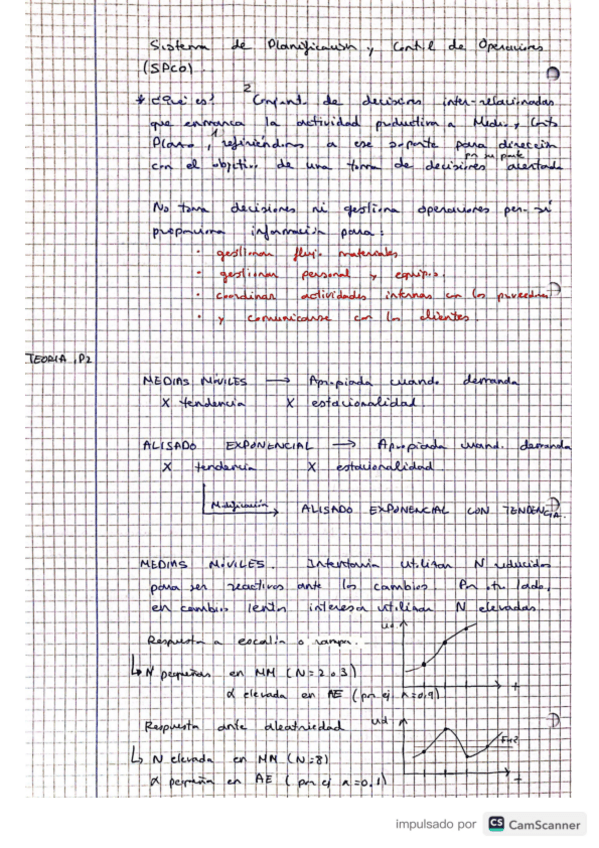 Sistema de Planificación y Control de Operaciones
(SPCO).
¿Qué es? 2 Conjunt. de decisions inter-relacionadas
que enmarca la actividad productiva a Medio y Corto
Plazo, 1 refiriéndonos a ese soporte para dirección
por su parte
con el objetivo de una toma de decisiones acertada
No toma decisiones ni gestiona operaciones per-sí
proporciona información para:
· gestionar flujo materiales
· gestionar personal y equipos.
· coordinar actividades internas con los proveedores
· y comunicarse con los clientes.
TEORIA, P2
MEDIAS MÓVILES → Apropiada cuando demanda
X tendencia X estacionalidad
ALISADO EXPONENCIAL → Apropiada cuand. demanda
X tendencia X estacionalidad.
Modificación → ALISADO EXPONENCIAL CON TENDENCIA.
MEDIAS MÓVILES. Intentaría utilizar N reducidos
para ser reactivos ante los cambios. Por otro lado,
en cambios lentos interesa utilizar N elevadas.
Ud.
Respuesta a escalón o rampa.
↳ N pequeñas en MM (N=2 o 3)
t
α elevada en AE (por ej α=0,9)
Respuesta ante aleatoriedad
ud
↳ N elevada en MM (N=8)
t
α pequeña en AE (por ej α=0.1)
impulsado por CS CamScanner